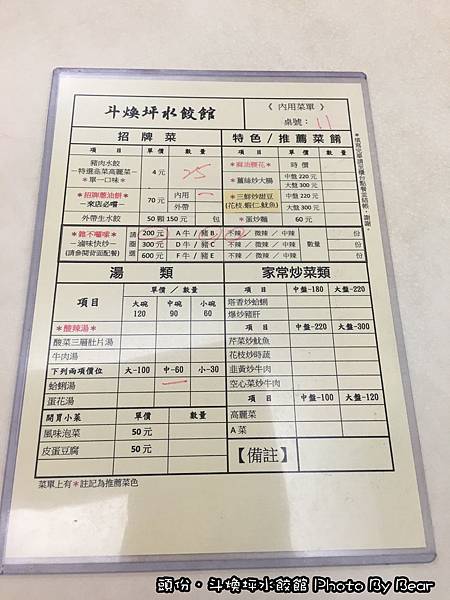 斗煥坪水餃館
《 內用菜單 》
桌號： 11
招牌菜
項目 單價 數量
豬肉水餃
－特選韭菜高麗菜－
＊單一口味＊
4元 25
＊招牌蔥油餅＊
－來店必嚐－
70元 內用 一
外帶
外帶生水餃 50顆150元 包
＊雜不囉嗦＊
－滷味快炒－
(請參閱背面配餐)
請圈選
200元 A牛/豬B
300元 D牛/豬C
600元 F牛/豬E
特色/推薦菜餚
項目 單價 數量
＊麻油腰花＊ 時價
＊薑絲炒大腸 中盤220元
大盤300元
＊三鮮炒甜豆
(花枝.蝦仁.魷魚)
中盤220元
大盤300元
＊蛋炒麵 60元
不辣 / 微辣 / 中辣 份
不辣 / 微辣 / 中辣 數量 份
不辣 / 微辣 / 中辣 份
湯類
項目 單價 / 數量
大碗 中碗 小碗
120 90 60
＊酸辣湯＊
酸菜三層肚片湯
牛肉湯
下列兩項價位 大-100 中-60 小-30
蛤蜊湯 一
蛋花湯
開胃小菜 單價 數量
風味泡菜 50元
皮蛋豆腐 50元
家常炒菜類
項目 中盤-180 大盤-220
塔香炒蛤蜊
爆炒豬肝
項目 中盤-220 大盤-300
芹菜炒魷魚
花枝炒時蔬
韭黃炒牛肉
空心菜炒牛肉
項目 中盤-100 大盤-120
高麗菜
A菜
【備註】
菜單上有＊註記為推薦菜色
頭份‧斗煥坪水餃館 Photo By Bear